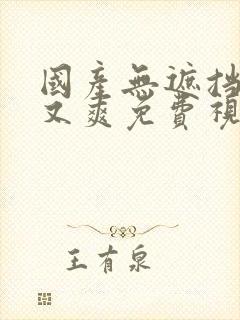 國產無遮挡
又爽免費視
王有泉